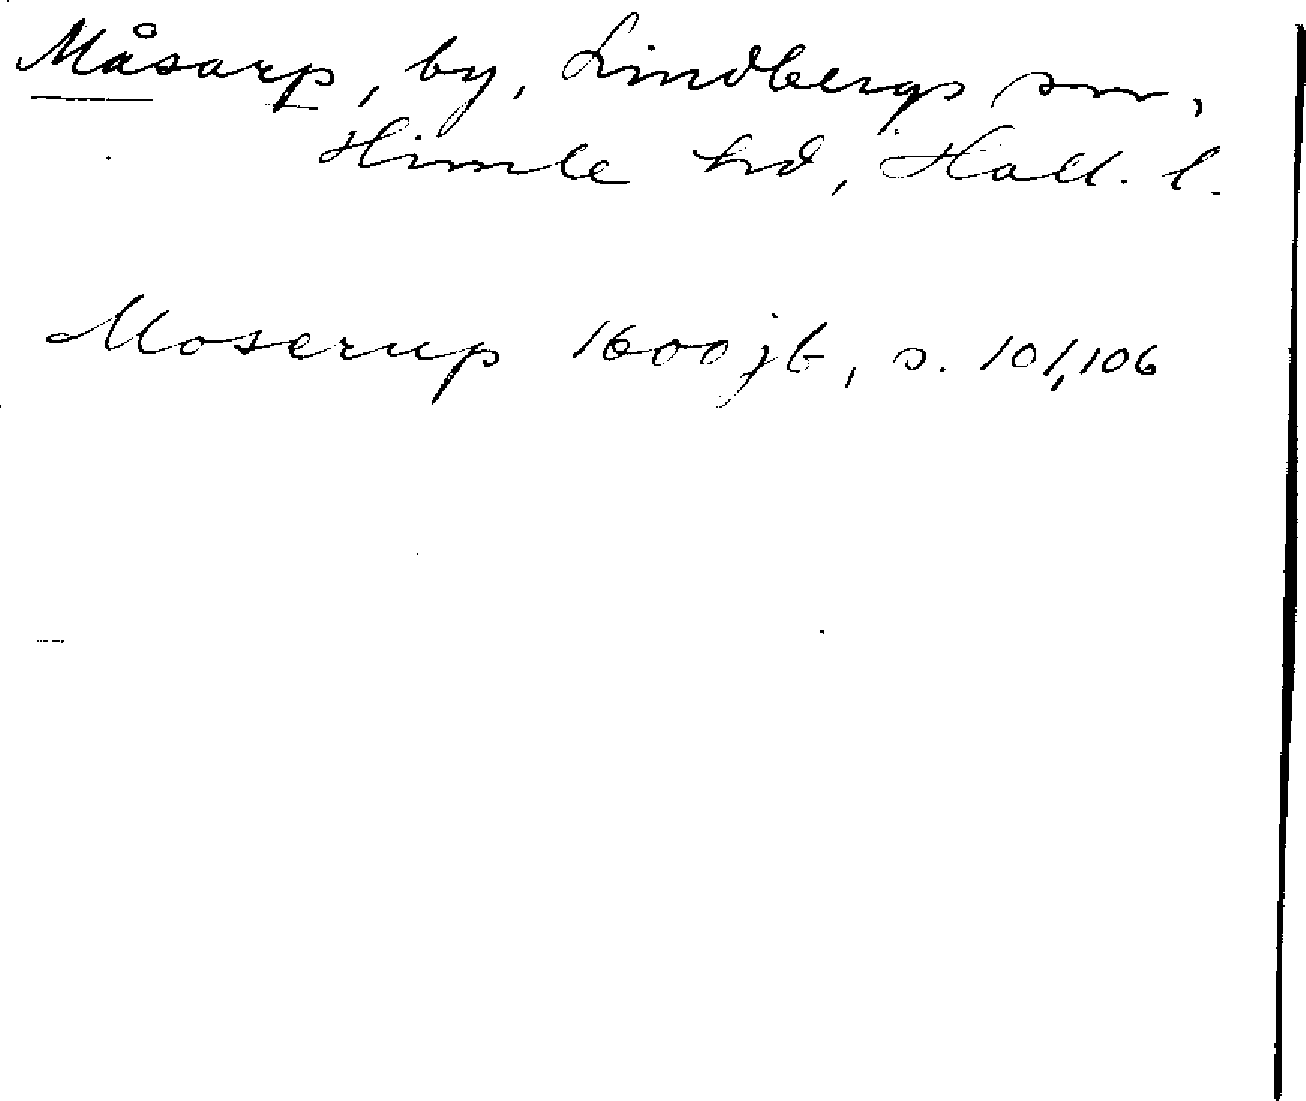 Måsarp, by, Lindbergs sn,
Himle hd, Hall. l.
Moserup 1600 jb, s. 101, 106